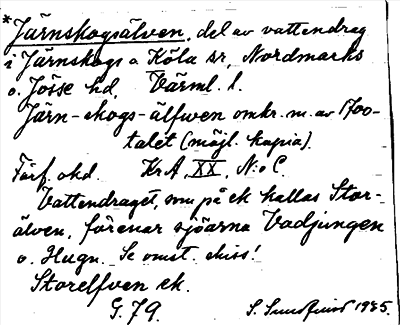 *Järnskogsälven, del av vattendrag
i Järnskogs o Köla sr, Nordmarks
o. Jösse hd, Värml. l.
Järn-skogs-älfwen omkr. m. av 1700-
talet (möjl. kopia).
Förf. okd. KrA, XX, N:o C.
Vattendraget, som på ek kallas Stor-
älven, förenar sjöarna Vadjungen
o. Hugn. Se omst. skiss!
Storelfven ek.
G. 79. S. 1985.